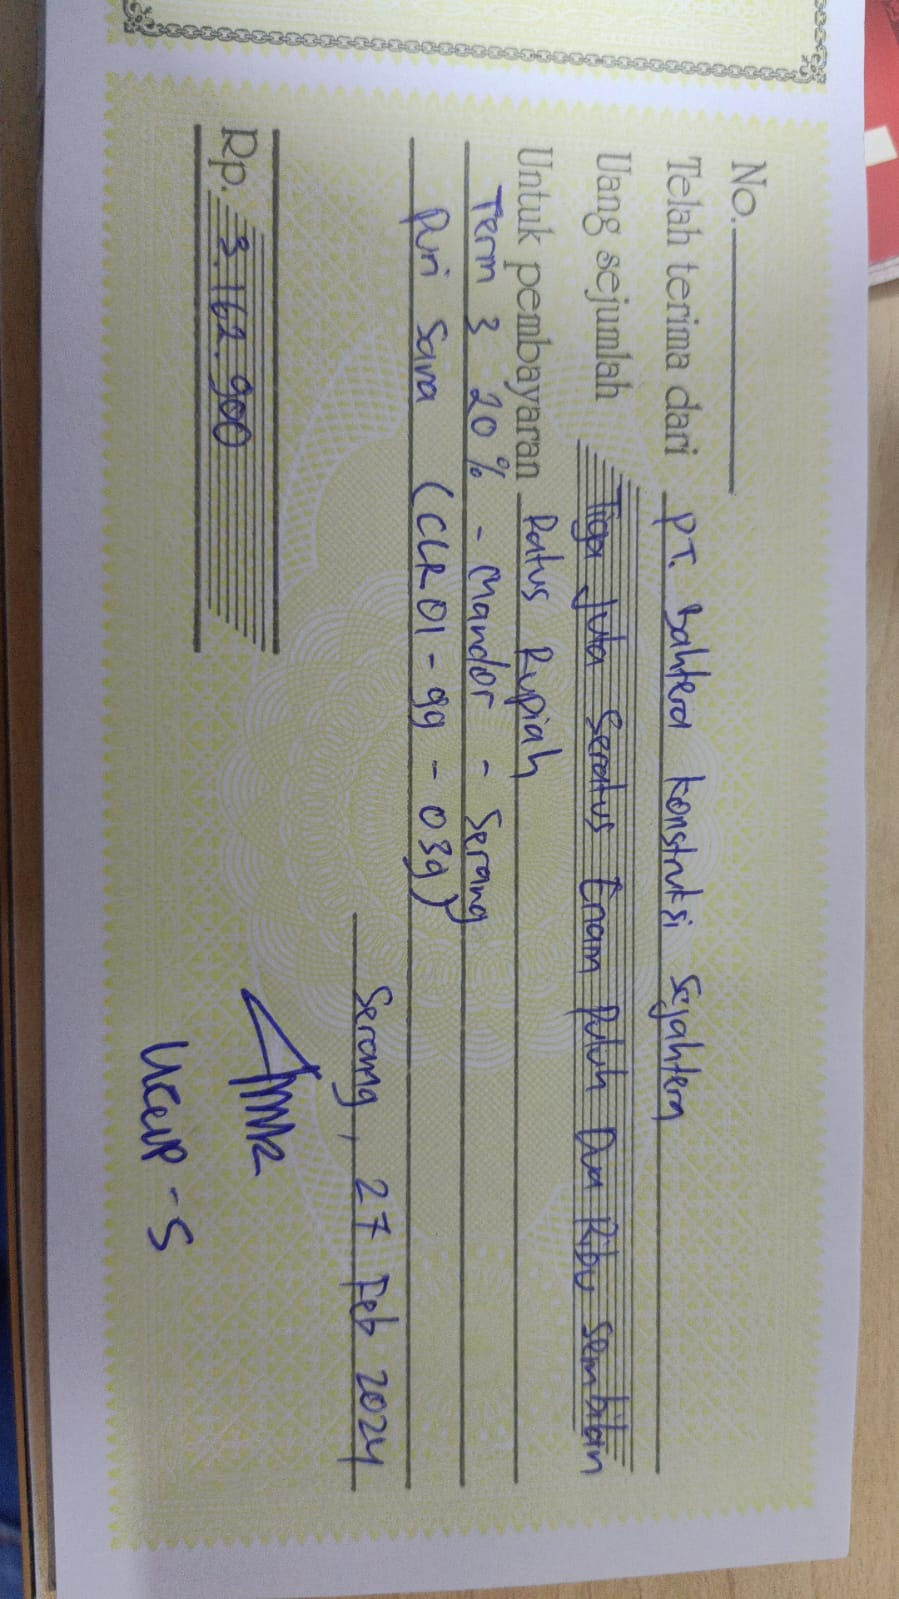 No.
Telah terima dari PT. Bahtera Konstruksi Sejahtera
Uang sejumlah Tiga Juta Seratus Enam Puluh Dua Ribu Sembilan
Untuk pembayaran Ratus Rupiah
Term 3 20% - Mandor - Serang
Puri Sava (CLR01-99-039)
Serang, 27 Feb 2024
Rp. 3.162.900
Ucup-S